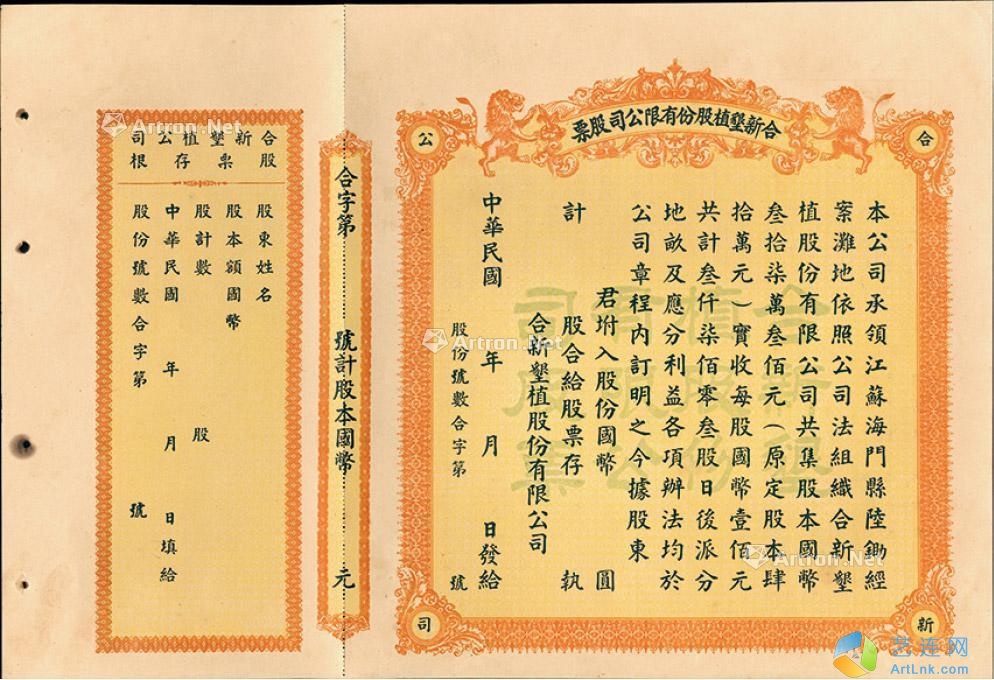 合新墾植股份有限公司股票
合
新
公
司
本公司承領江蘇海門縣陸鋤經
案灘地依照公司法組織合新墾
植股份有限公司共集股本國幣
叁拾柒萬叁佰元（原定股本肆
拾萬元）實收每股國幣壹佰元
共計叁仟柒佰零叁股日後派分
地畝及應分利益各項辦法均於
公司章程内訂明之今據股東
君坿入股份國幣 圓
計 股合給股票存 執
合新墾植股份有限公司
中華民國 年 月 日發給
股份號數合字第 號
合新墾植股份有限公司股票
合字第 號計股本國幣 元
合新墾植公司
股票存根
股東姓名
股本額國幣
股計數 股
中華民國 年 月 日填給
股份號數合字第 號
Artron.Net
Artron.Net
Artron.Net
Artron.Net
艺连网
ArtLnk.com